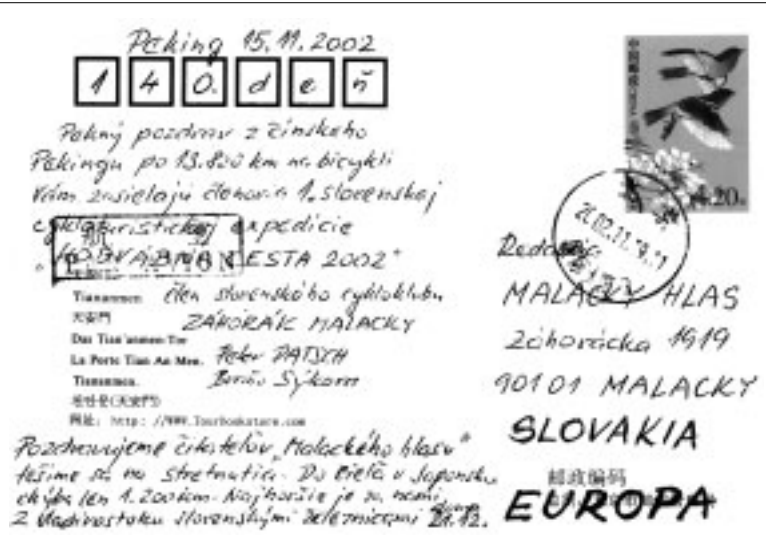 Peking 15.11.2002
1 4 0. d e ň
Pekný pozdrav z čínskeho
Pekingu po 13.800 km na bicykli
Vám zasielajú členovia 1. slovenskej
cykloturistickej expedície
"HODVÁBNA CESTA 2002"
Tiananmen. člen slovenského cykloklubu
天安門 ZÁHORÁK MALACKY
Das Tian'anmen-Tor
La Porte Tian An Men. Peter PATSCH
Tiananmen. Sýkora
(天安門)
网址: http://WWW.Tourbookstore.com
Pozdravujeme čitateľov "Malackého hlasu"
tešíme sa na stretnutia. Do cieľa v Japonsku
chýba len 1.200 km. Najhoršie je za nami.
Z Vladivostoku slovenskými železnicami 21.12.
中国邮政
4.20
2002.11.
Redakcia
MALACKÝ HLAS
Záhorácka 1919
90101 MALACKY
SLOVAKIA
邮政编码
EUROPA